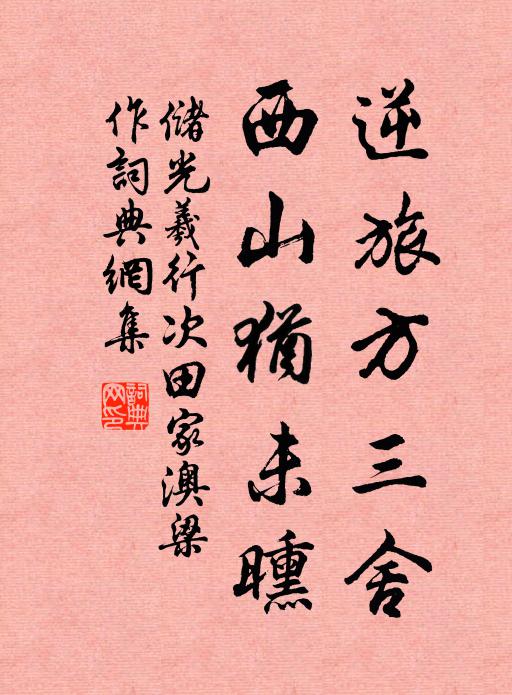 逆旅方三舍
西山猶未曛
儲光羲行次田家澳梁
作詞典網集
詞典
網印